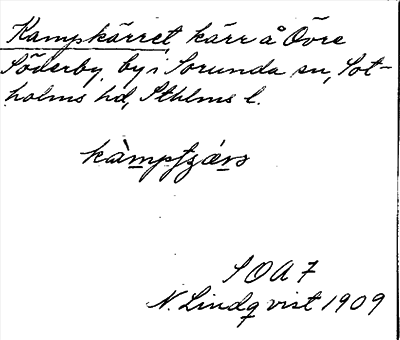 Kampkärret, kärr å Övre
Söderby, by i Sorunda sn, Sot-
holms hd, Sthlms l.
SOA 7
N. Lindqvist 1909